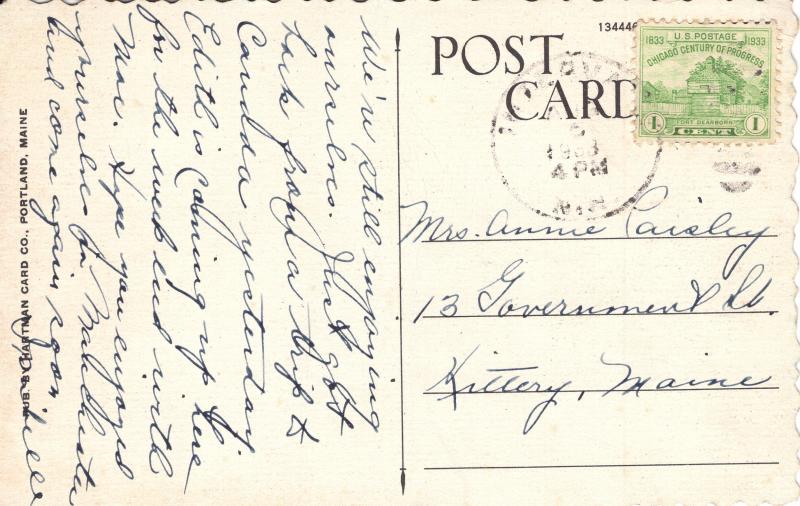 We're still enjoying
ourselves. Just got
back from a trip to
Canada yesterday.
Edith is coming up here
for the week end with
Mac. Hope you enjoyed
yourselves in
and come again soon
PUB. BY HARTMAN CARD CO., PORTLAND, MAINE
POST
CARD
134446
U.S. POSTAGE
1833 1933
CHICAGO CENTURY OF PROGRESS
FORT DEARBORN
1 CENT 1
1933
4 PM
N.H.
Mrs. Annie Paisley
13 Government St.
Kittery, Maine